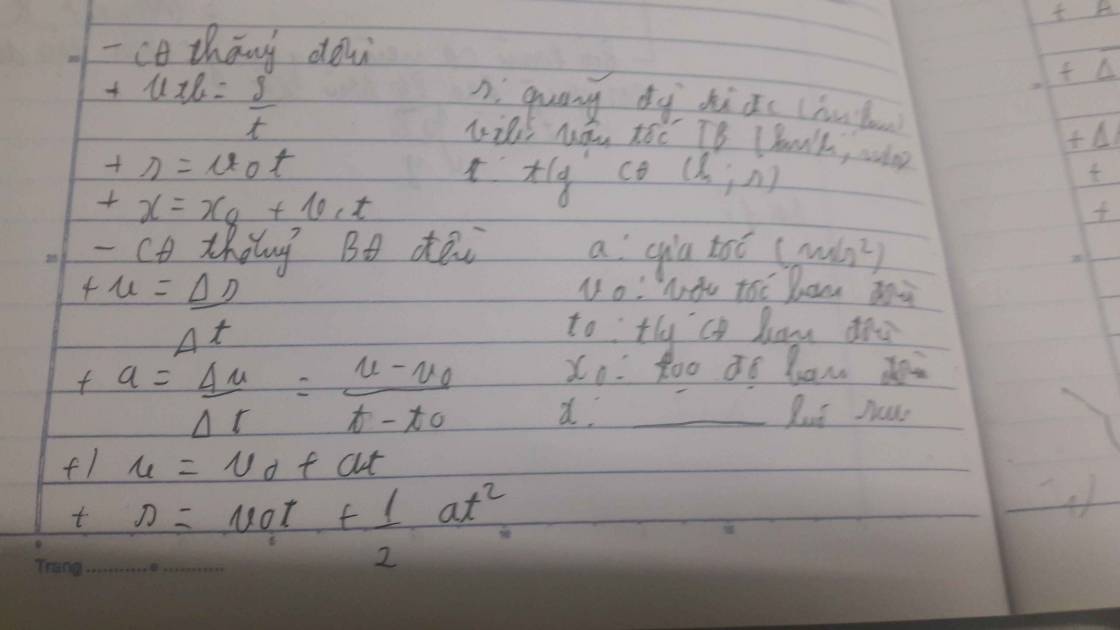 - CĐ thẳng đều
+ vtb = s/t s: quãng đg đi đc (m, km)
vtb: vận tốc TB (km/h, m/s)
+ s = v0t t: tg CĐ (h; s)
+ x = x0 + v.t
- CĐ thẳng BĐ đều a: gia tốc (m/s²)
+ v = Δs/Δt v0: vận tốc ban đầu
t0: tg CĐ ban đầu
+ a = Δv/Δt = v - v0/t - t0 x0: toạ độ ban đầu
x: ______ lúc sau
+) v = v0 + at
+ s = v0t + 1/2 at²
Trang
+
+ Δ
+ Δ
+
+